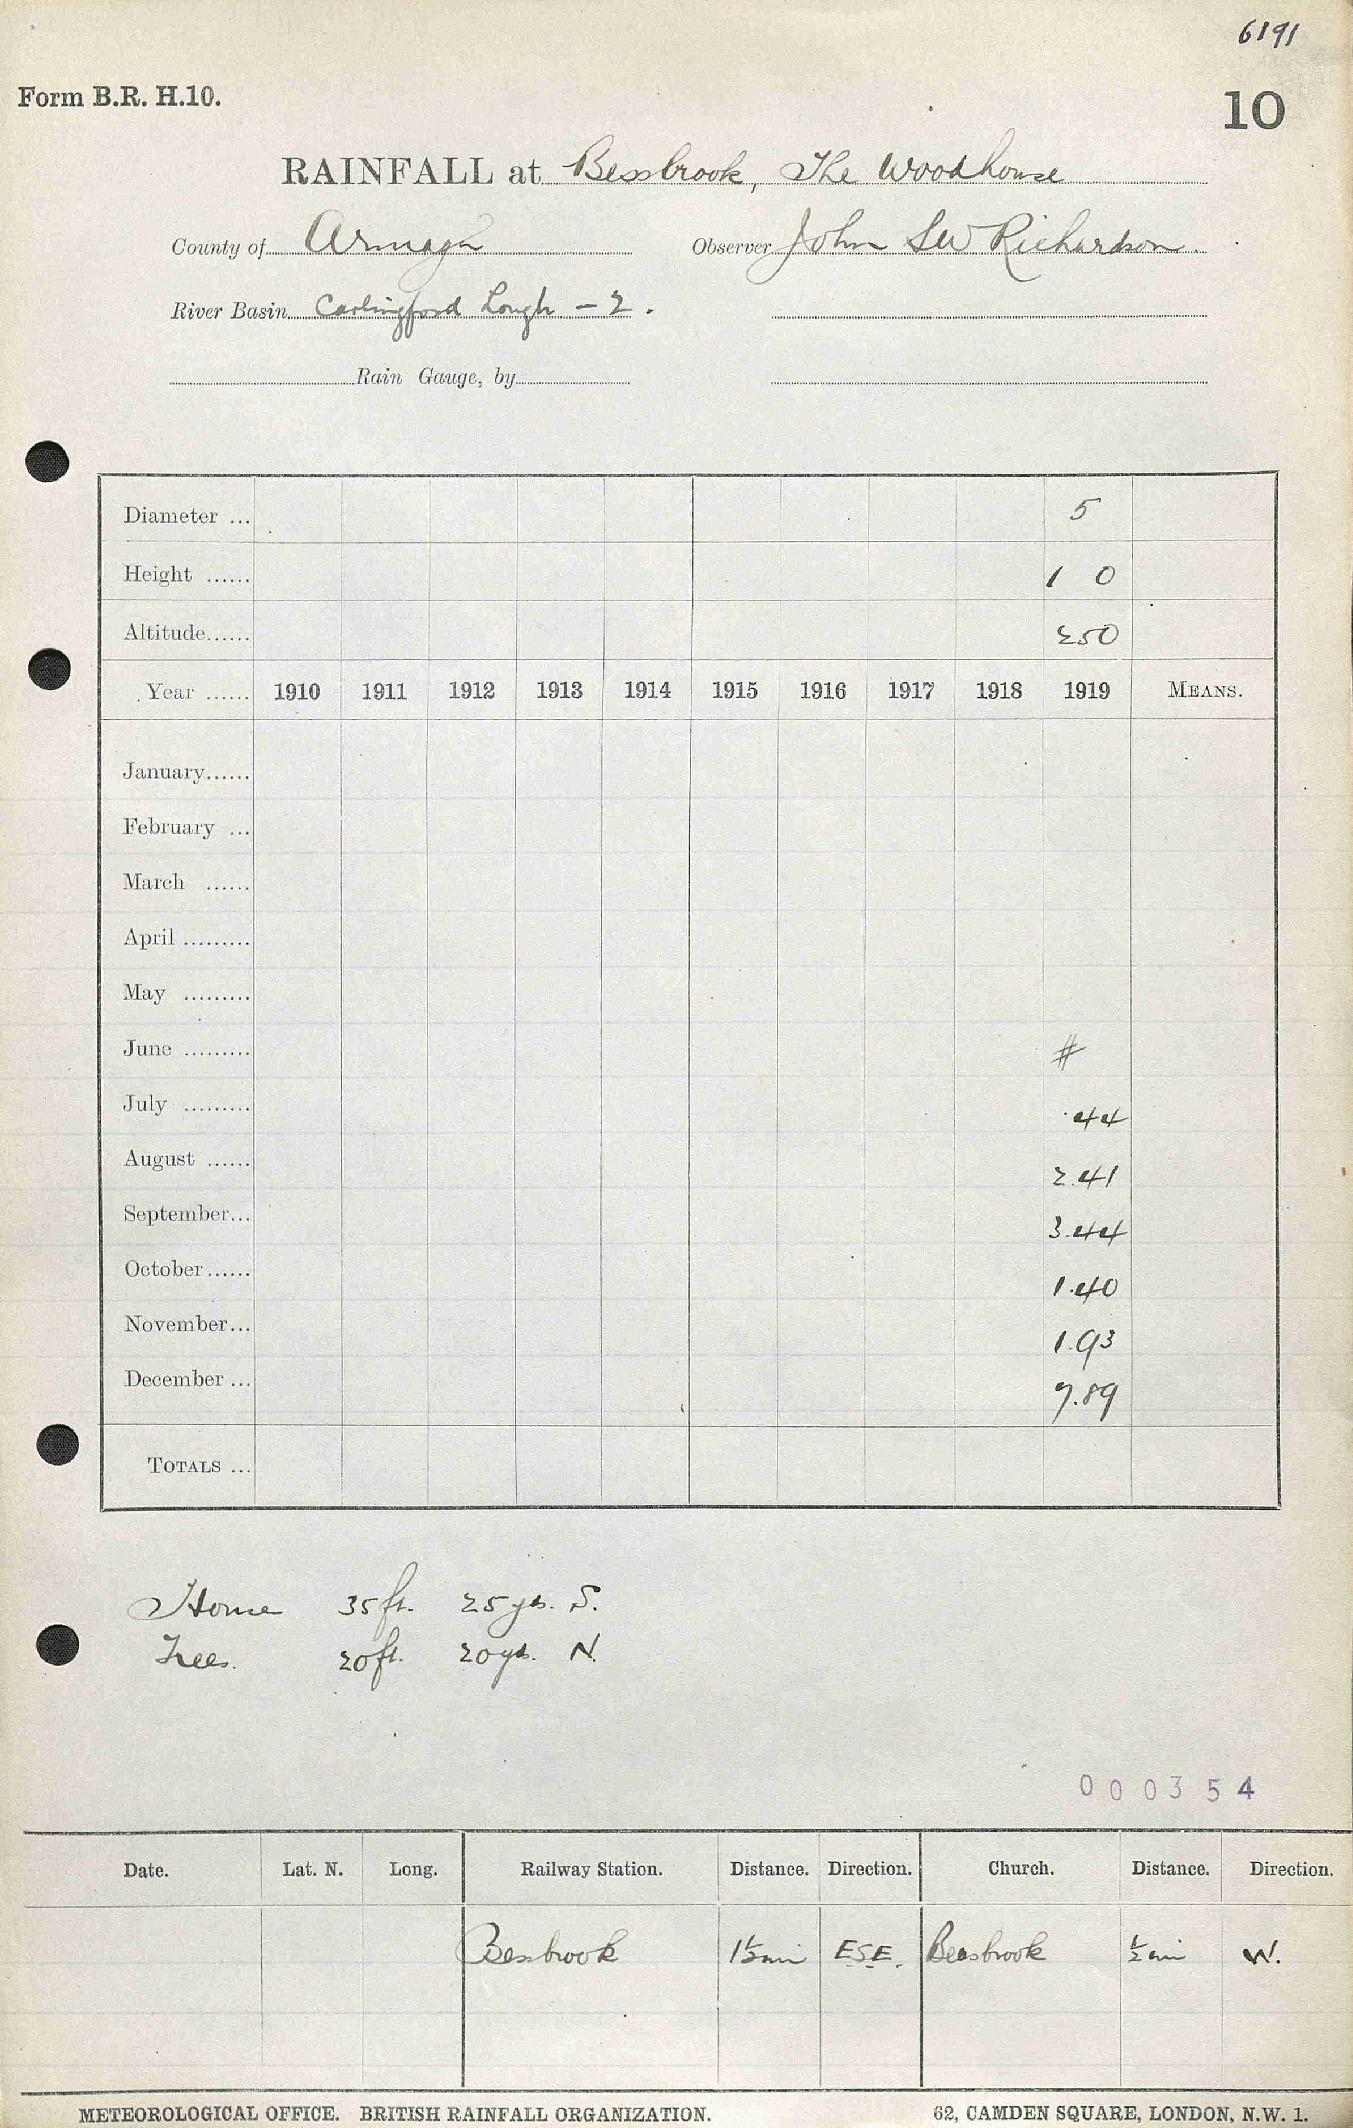 6191
Form B.R. H.10.
10
RAINFALL at Bessbrook, The Woodhouse
County of Armagh Observer John SW Richardson
River Basin Carlingford Lough - 2.
Rain Gauge, by
Diameter ... 5
Height ...... 1 0
Altitude...... 250
Year ...... 1910 1911 1912 1913 1914 1915 1916 1917 1918 1919 MEANS.
January......
February ...
March ......
April .........
May .........
June ......... #
July ......... .44
August ...... 2.41
September... 3.44
October...... 1.40
November... 1.93
December ... 7.89
TOTALS ...
House 35ft. 25yds. S.
Trees. 20ft. 20yds. N.
000354
Date. Lat. N. Long. Railway Station. Distance. Direction. Church. Distance. Direction.
Bessbrook 1½mi ESE. Bessbrook ½mi W.
METEOROLOGICAL OFFICE. BRITISH RAINFALL ORGANIZATION. 62, CAMDEN SQUARE, LONDON, N.W. 1.